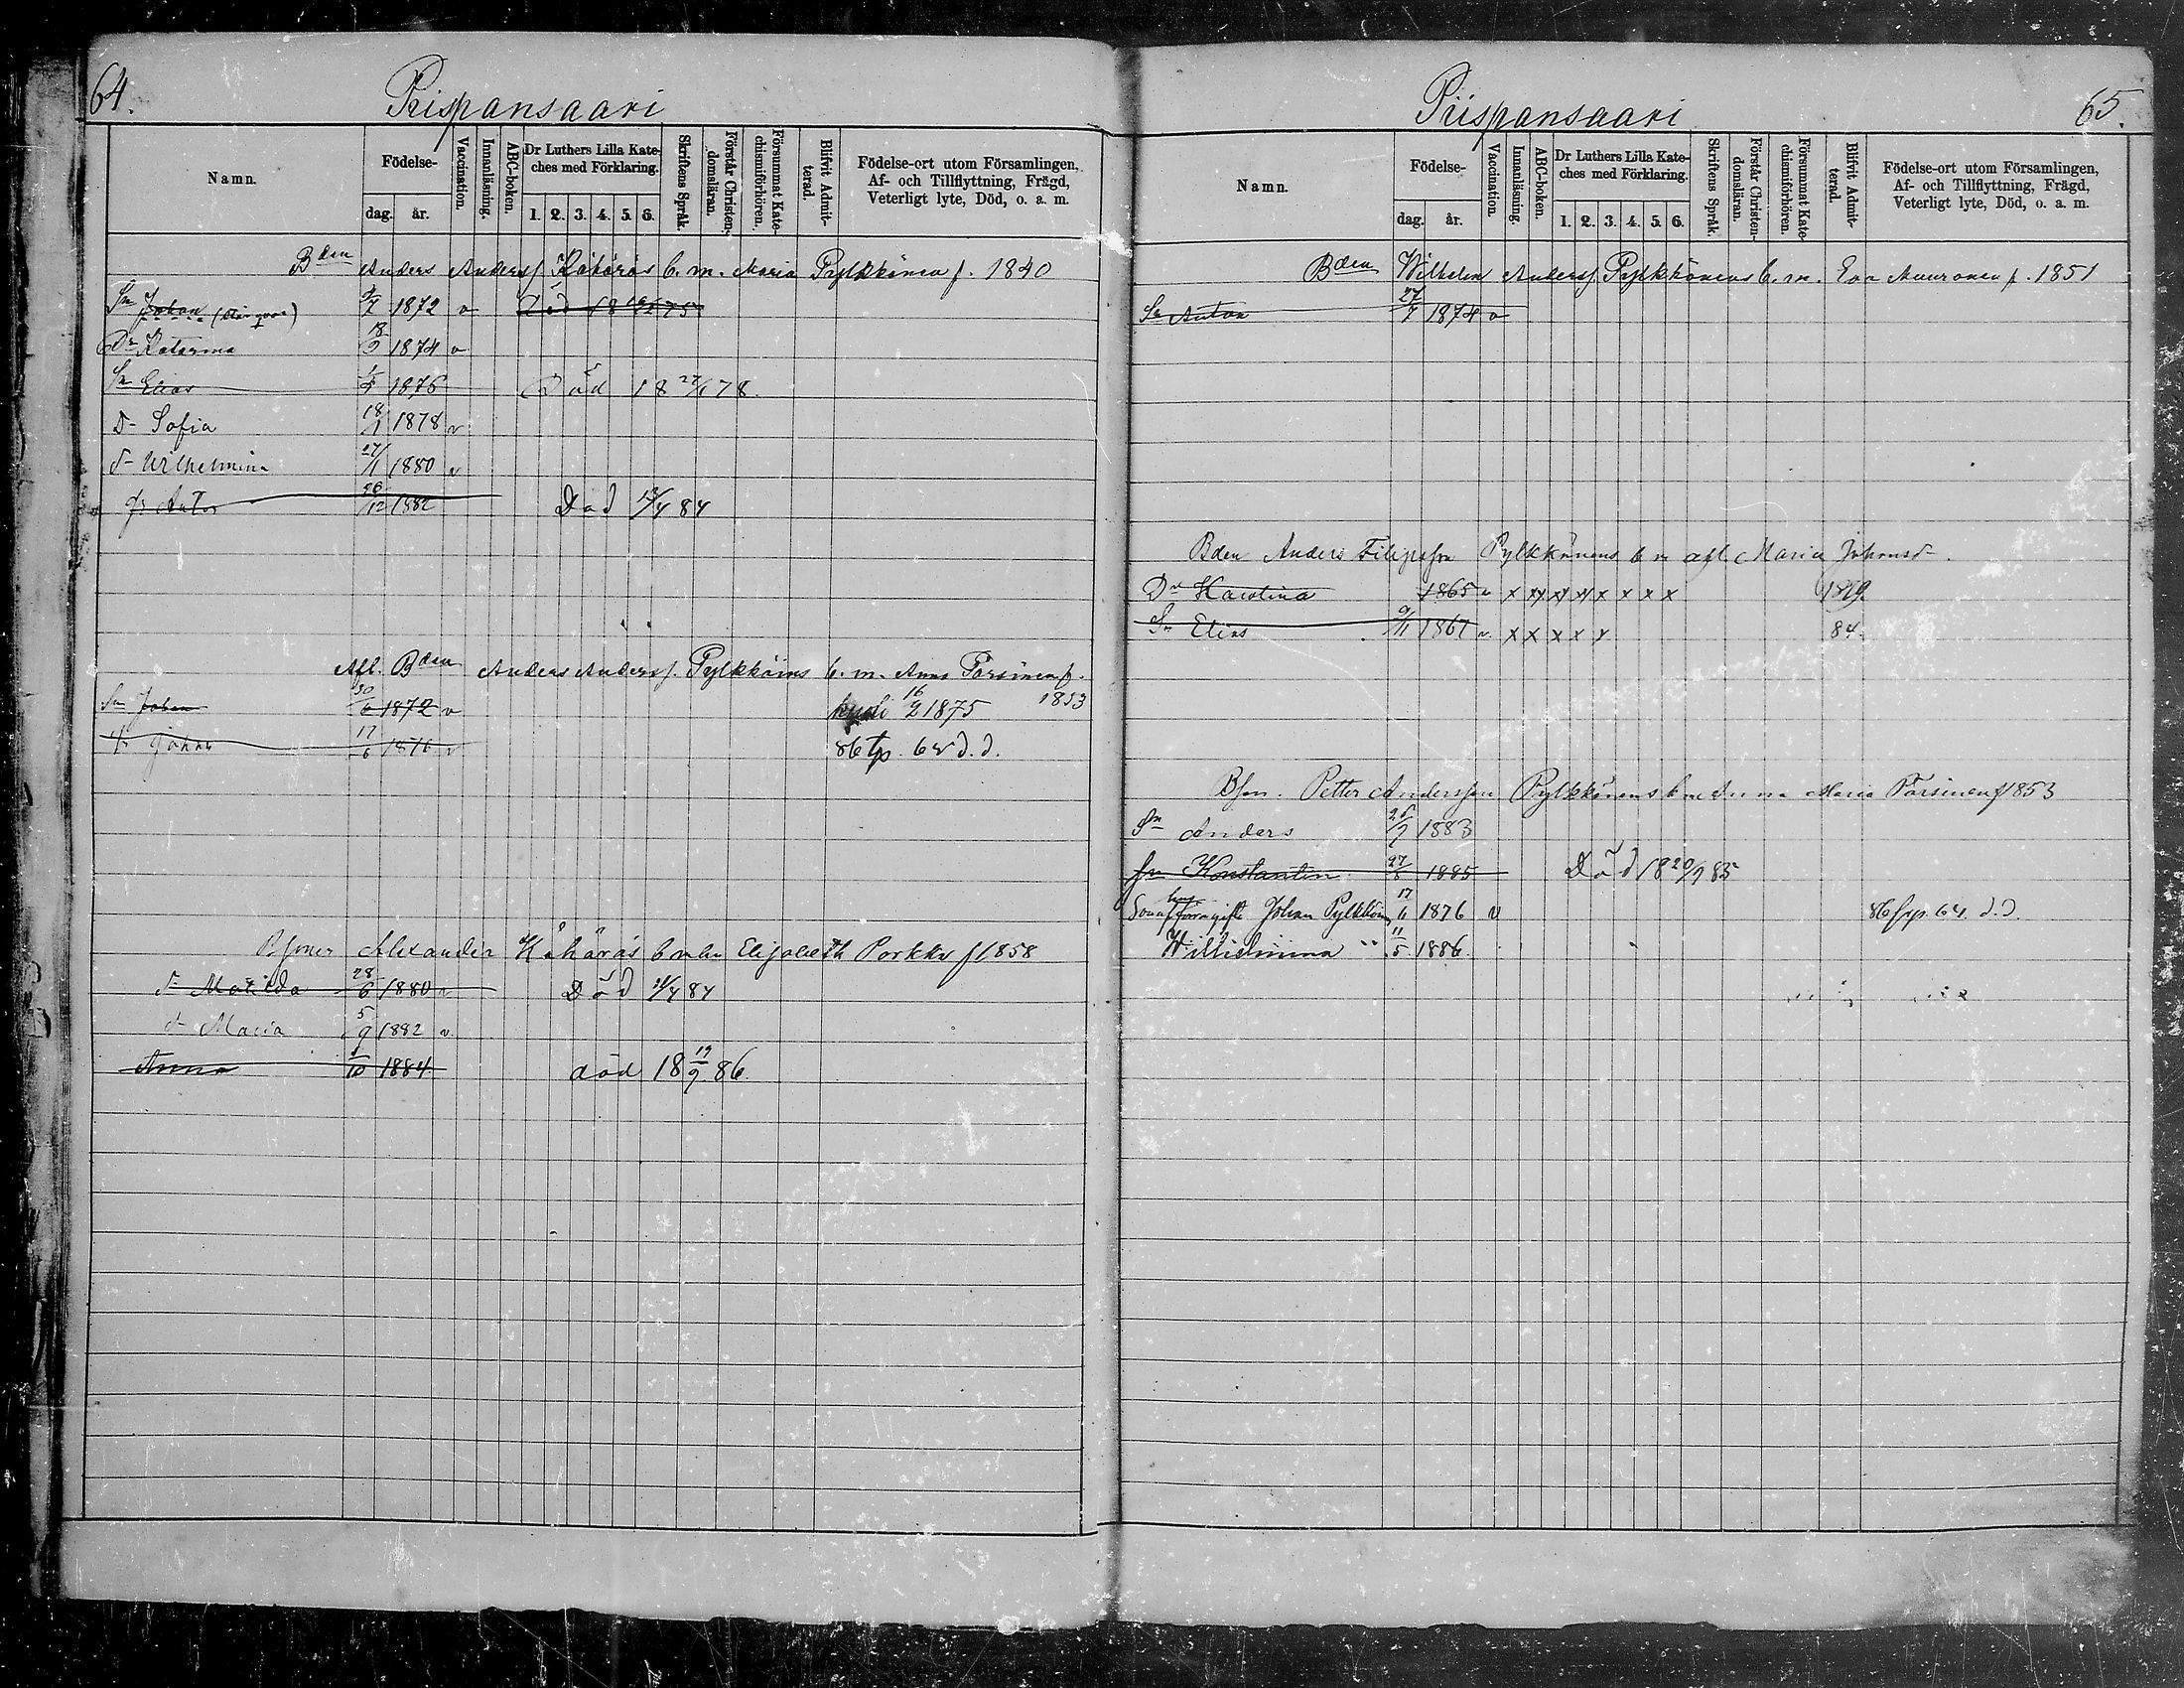 64.
Piispansaari
Namn.
Födelse-
dag.
år.
Vaccination.
Innanläsning.
ABC-boken.
Dr Luthers Lilla Kate-
ches med Förklaring.
1. 2. 3. 4. 5. 6.
Skriftens Språk.
Förstår Christen-
domsläran.
Försummat Kate-
chismiförhören.
Blifvit Admit-
terad.
Födelse-ort utom Församlingen,
Af- och Tillflyttning, Frägd,
Veterligt lyte, Död, o. a. m.
Bden Anders Anderss. Kähäräs b. m. Maria Pylkkönen f. 1840
Sn Johan 1872 v Död
Dr Katarina 18/9 1874 v
Sn Elias 1876 Död 18 27/1 78.
D- Sofia 18/1 1878 v
d- Wilhelmina 27/1 1880 v
Anton 26/12 1882 Död 13/4 84
Afl. Bden Anders Anderss. Pylkköins b. m. Anna Porsinen f. 1853
Sn Johan 30/6 1872 v 16/2 1875
Johan 17/6 1876 v 86 fp. 64 d. d.
Alexander Kähäräs b m hu Elisabeth Porkka f 1858
d- Matilda 28/6 1880 v Död 21/4 84
d- Maria 5/9 1882 v.
Anna 1/10 1884 död 18 19/9 86.
Piispansaari
65.
Namn.
Födelse-
dag.
år.
Vaccination.
Innanläsning.
ABC-boken.
Dr Luthers Lilla Kate-
ches med Förklaring.
1. 2. 3. 4. 5. 6.
Skriftens Språk.
Förstår Christen-
domsläran.
Försummat Kate-
chismiförhören.
Blifvit Admit-
terad.
Födelse-ort utom Församlingen,
Af- och Tillflyttning, Frägd,
Veterligt lyte, Död, o. a. m.
Bden Wilhelm Anderss. Pylkkönens b. m. Eva Muuronen f. 1851
Sn Anton 27/7 1874 v
Bden Anders Filipsson Pylkkönens b m afl. Maria Johansd.
Dr Karolina 1865 v x xy xy xy x x x x
Sn Elias 9/11 1867 v. x x x x y 84.
Bson. Petter Andersson Pylkkönens b m Anna Maria Porsinen f 1853
Sn Anders 26/7 1883
Sn Konstantin 27/8 1885 Död 18 20/9 85
Johan Pylkkönen 17/6 1876 v 86 fp. 64. d.d.
Wilhelmina " 11/5 1886.